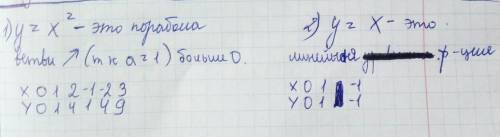 1) y = x² - это парабола
ветви ↗ (т к a = 1) больше 0.
X 0 1 2 -1 -2 3
Y 0 1 4 1 4 9
2) y = x - это
линейная ф-ция
X 0 1 -1
Y 0 1 -1